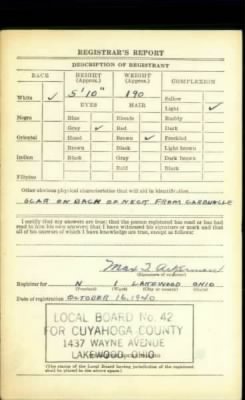 REGISTRAR'S REPORT
DESCRIPTION OF REGISTRANT
RACE HEIGHT (Approx.) WEIGHT (Approx.) COMPLEXION
White ✓ 5'10" 190 Sallow
EYES HAIR Light ✓
Negro Blue Blonde Ruddy
Gray ✓ Red Dark
Oriental Hazel Brown ✓ Freckled
Brown Black Light brown
Indian Black Gray Dark brown
Bald Black
Filipino
Other obvious physical characteristics that will aid in identification
SCAR ON BACK OF NECK FROM CARBUNCLE
I certify that my answers are true; that the person registered has read or has had
read to him his own answers; that I have witnessed his signature or mark and that
all of his answers of which I have knowledge are true, except as follows:
Max
(Signature of registrar)
Registrar for N 1 LAKEWOOD OHIO
(Precinct) (Ward) (City or county) (State)
Date of registration OCTOBER 16, 1940
LOCAL BOARD No. 42
FOR CUYAHOGA COUNTY
1437 WAYNE AVENUE
LAKEWOOD, OHIO
(The stamp of the Local Board having jurisdiction of the registrant
shall be placed in the above space.)